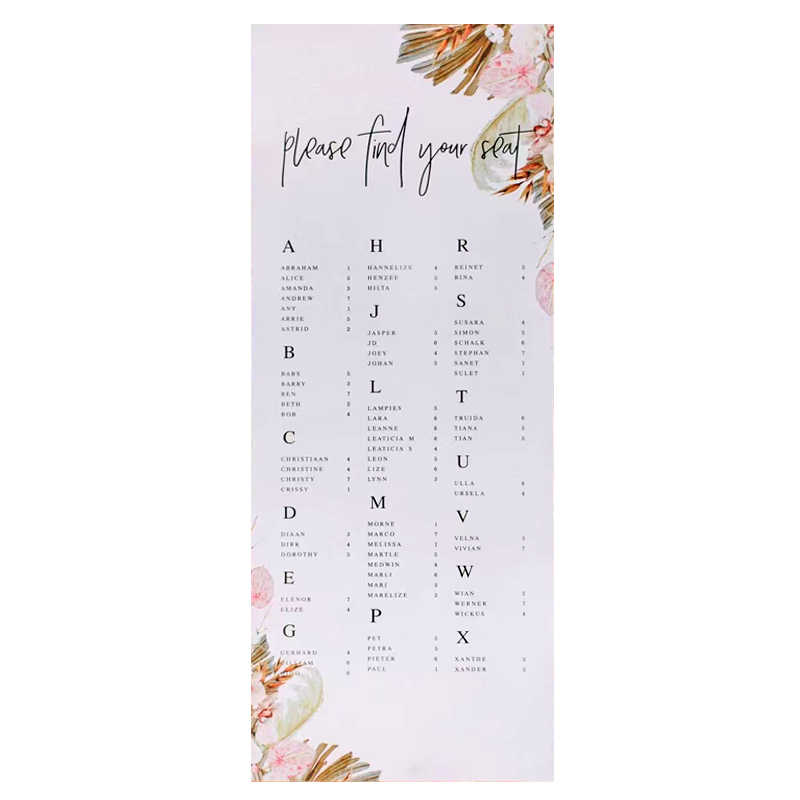 please find your seat
A
ABRAHAM 1
ALICE 5
AMANDA 3
ANDREW 7
ANY 1
ARRIE 5
ASTRID 2
B
BABS 5
BARRY 3
BEN 7
BETH 2
BOB 4
C
CHRISTIAAN 4
CHRISTINE 4
CHRISTY 7
CRISSY 1
D
DIAAN 3
DIRK 4
DOROTHY 5
E
ELENOR 7
ELIZE 4
G
GERHARD 4
GILLIAM 6
6
H
HANNELIZE 4
HENZEE 5
HILTA 5
J
JASPER 5
JD 6
JOEY 4
JOHAN 5
L
LAMPIES 5
LARA 6
LEANNE 6
LEATICIA M 6
LEATICIA S 4
LEON 5
LIZE 6
LYNN 3
M
MORNE 1
MARCO 7
MELISSA 1
MARTLE 5
MEDWIN 4
MARLI 6
MARI 3
MARELIZE 3
P
PET 5
PETRA 5
PIETER 6
PAUL 1
R
REINET 5
RINA 4
S
SUSARA 4
SIMON 5
SCHALK 6
STEPHAN 7
SANET 1
SULET 1
T
TRUIDA 6
TIANA 5
TIAN 5
U
ULLA 6
URSELA 4
V
VELNA 3
VIVIAN 7
W
WIAN 2
WERNER 7
WICKUS 4
X
XANTHE 3
XANDER 5